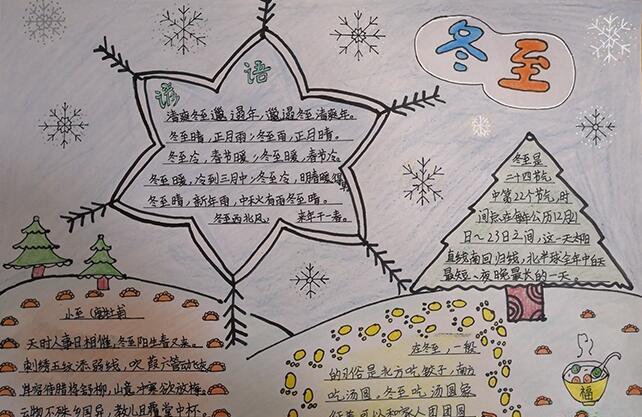 冬至
谚语
清爽冬至邋遢年,邋遢冬至清爽年。
冬至晴,正月雨;冬至雨,正月晴。
冬至冷,春节暖;冬至暖,春节冷。
冬至暖,冷到三月中;冬至冷,明春暖得
冬至晴,新年雨,中秋有雨冬至晴。
冬至西北风,来年干一春。
冬至是
二十四节气
中第22个节气,时
间点在每年公历12月21
日~23日之间,这一天太阳
直线南回归线,北半球全年中白天
最短、夜晚最长的一天。
小至
天时人事日相催,冬至阳生春又来。
刺绣五纹添弱线,吹葭六管动
岸容待腊将舒柳,山意冲寒欲放梅。
云物不殊乡国异,教儿且覆掌中杯。
在冬至,一般
的习俗是北方吃饺子,南方
吃汤圆,冬至吃汤圆象
征着可以和家人团团圆
福